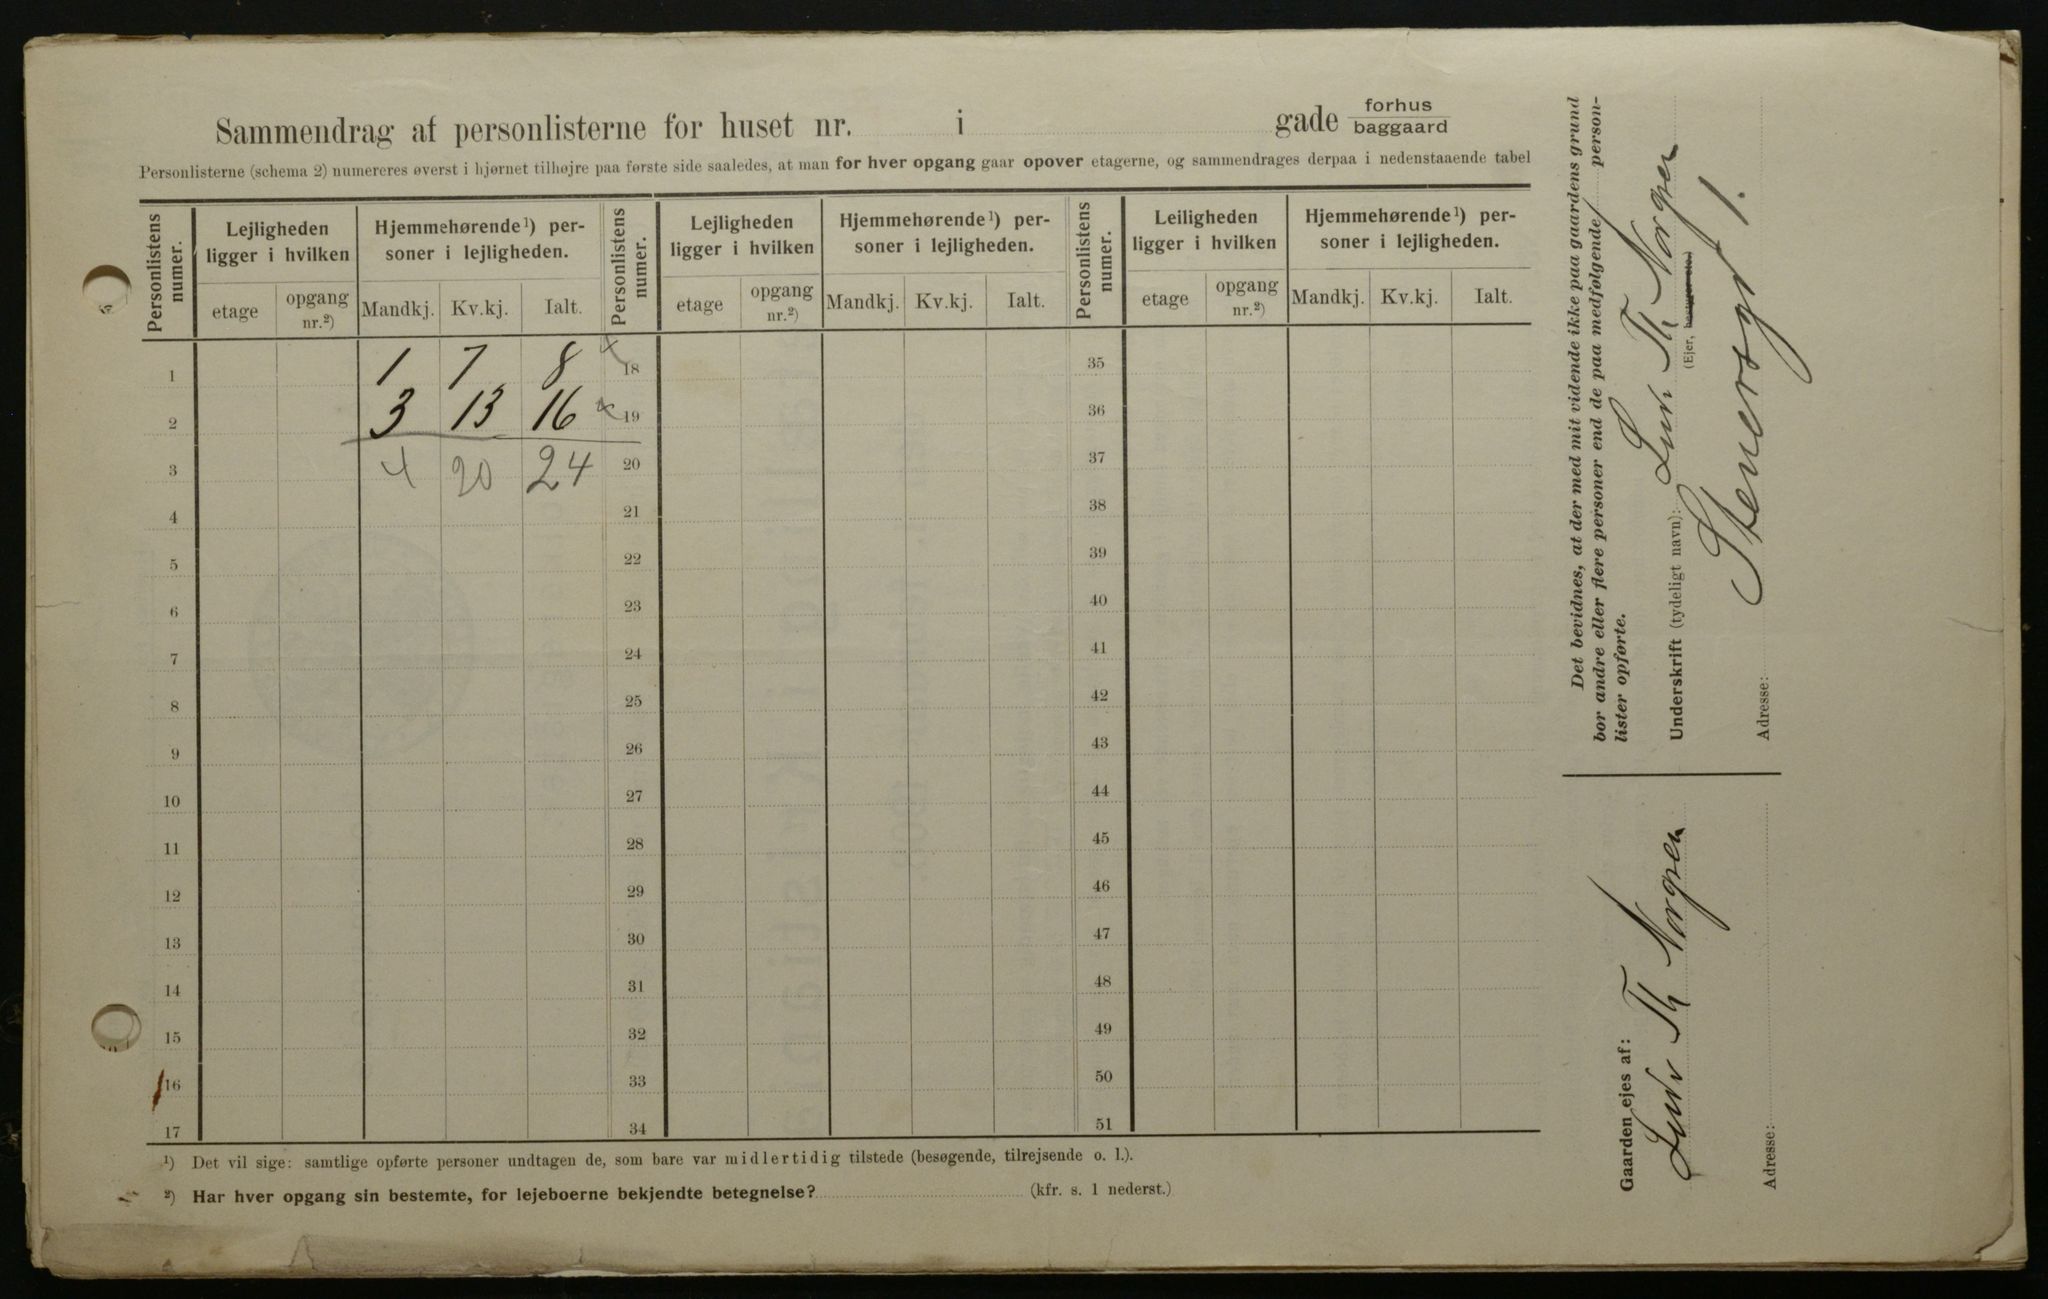 Sammendrag af personlisterne for huset nr. i gade forhus baggaard
Personlisterne (schema 2) numereres øverst i hjørnet tilhøjre paa første side saaledes, at man for hver opgang gaar opover etagerne, og sammendrages derpaa i nedenstaaende tabel
Personlistens numer.
Lejligheden ligger i hvilken
etage
opgang nr.²)
Hjemmehørende¹) personer i lejligheden.
Mandkj.
Kv.kj.
Ialt.
Personlistens numer.
Lejligheden ligger i hvilken
etage
opgang nr.²)
Hjemmehørende¹) personer i lejligheden.
Mandkj.
Kv.kj.
Ialt.
Personlistens numer.
Leiligheden ligger i hvilken
etage
opgang nr.²)
Hjemmehørende¹) personer i lejligheden.
Mandkj.
Kv.kj.
Ialt.
1 1 7 8 18 35
2 3 13 16 19 36
3 4 20 24 20 37
4 21 38
5 22 39
6 23 40
7 24 41
8 25 42
9 26 43
10 27 44
11 28 45
12 29 46
13 30 47
14 31 48
15 32 49
16 33 50
17 34 51
¹) Det vil sige: samtlige opførte personer undtagen de, som bare var midlertidig tilstede (besøgende, tilrejsende o. l.).
²) Har hver opgang sin bestemte, for lejeboerne bekjendte betegnelse? (kfr. s. 1 nederst.)
Det bevidnes, at der med mit vidende ikke paa gaardens grund
bor andre eller flere personer end de paa medfølgende person-
lister opførte.
Underskrift (tydeligt navn): Th Norgren
(Ejer, bestyrer etc.)
Stenersgt 1.
Adresse:
Gaarden ejes af:
Th Norgren
Adresse: